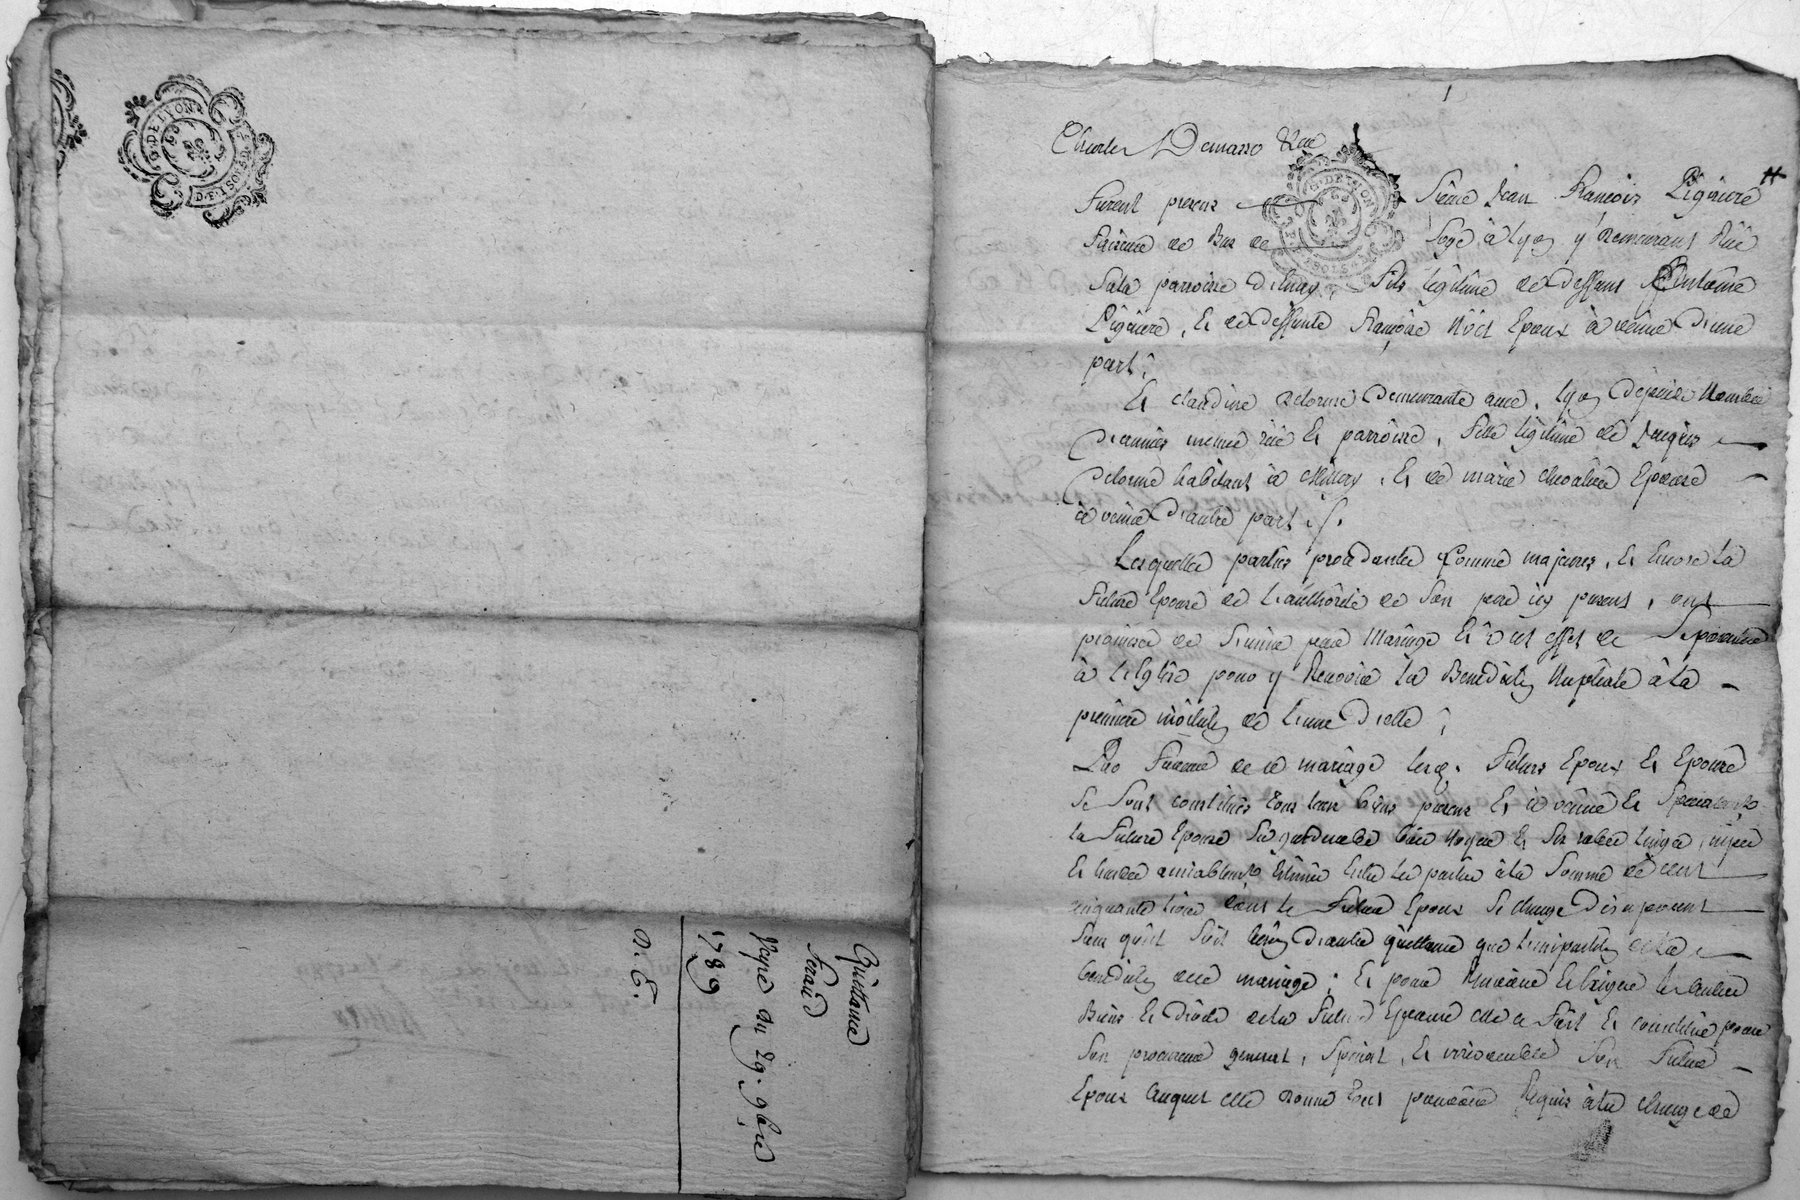 G. DE LYON
Quittance
Feraud
Payé du 29. 9bre
1789
D. C.
1
Furent presens Sieur Jean François Pigniere
faiseur de Bas de Soye à Lyon y demeurant Rüe
Sala parroisse d'Ainay, fils legitime de deffunt Antoine
Pigniere, Et de deffunte Françoise Epoux à venir d'une
part;
Et claudine delorme demeurante aud. Lyon depuis Nombre
d'années meme rüe Et parroisse, fille legitime de Jaques
delorme habitant à Millery, Et de marie chevalier Epouse
à venir d'autre part./.
Lesquelles parties procedantes Comme majeures, Et Encore La
future Epouse de L'authorité de Son pere icy present, ont
promis de S'unir par Mariage Et à cet effet de Se presenter
à L'eglise pour y Recevoir La Benediction Nuptiale à La
premiere de L'une d'elle;
En Faveur de ce mariage lesd. Futurs Epoux Et Epouse
Se Sont constitués tous leurs biens presens Et à venir Et Specialement
la Future Epouse Sa garderobe bois Noyer Et Ses robes linges,
Et hardes amiablement Estimés Entre les parties à la Somme de cent
cinquante livres dont le Futur Epoux Se charge dès à present
Sans qu'il Soit besoin d'autre quittance que de la
benediction dud. mariage; Et pour Et Exiger les autres
Biens Et droits de la Future Epouse elle a fait Et constitué pour
Son procureur general, Special, Et irrevocable Son Futur
Epoux auquel elle donne tout pouvoir Requis à la charge de